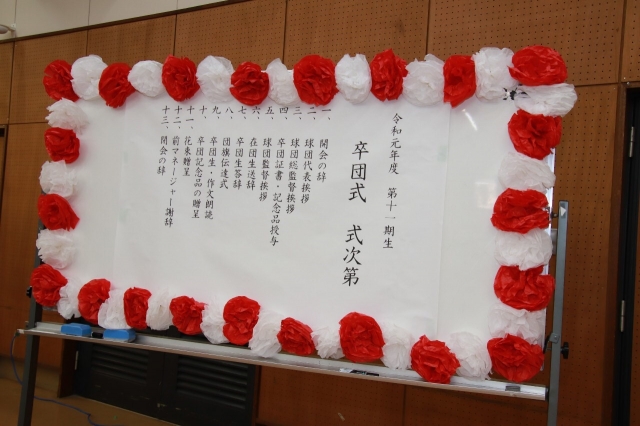 令和元年度　第十一期生
卒団式　式次第
一、開会の辞
二、球団代表挨拶
三、球団総監督挨拶
四、卒団証書・記念品授与
五、球団監督挨拶
六、在団生送辞
七、卒団生答辞
八、団旗伝達式
九、卒団生・作文朗読
十、卒団記念品の贈呈
十一、花束贈呈
十二、前マネージャー謝辞
十三、閉会の辞